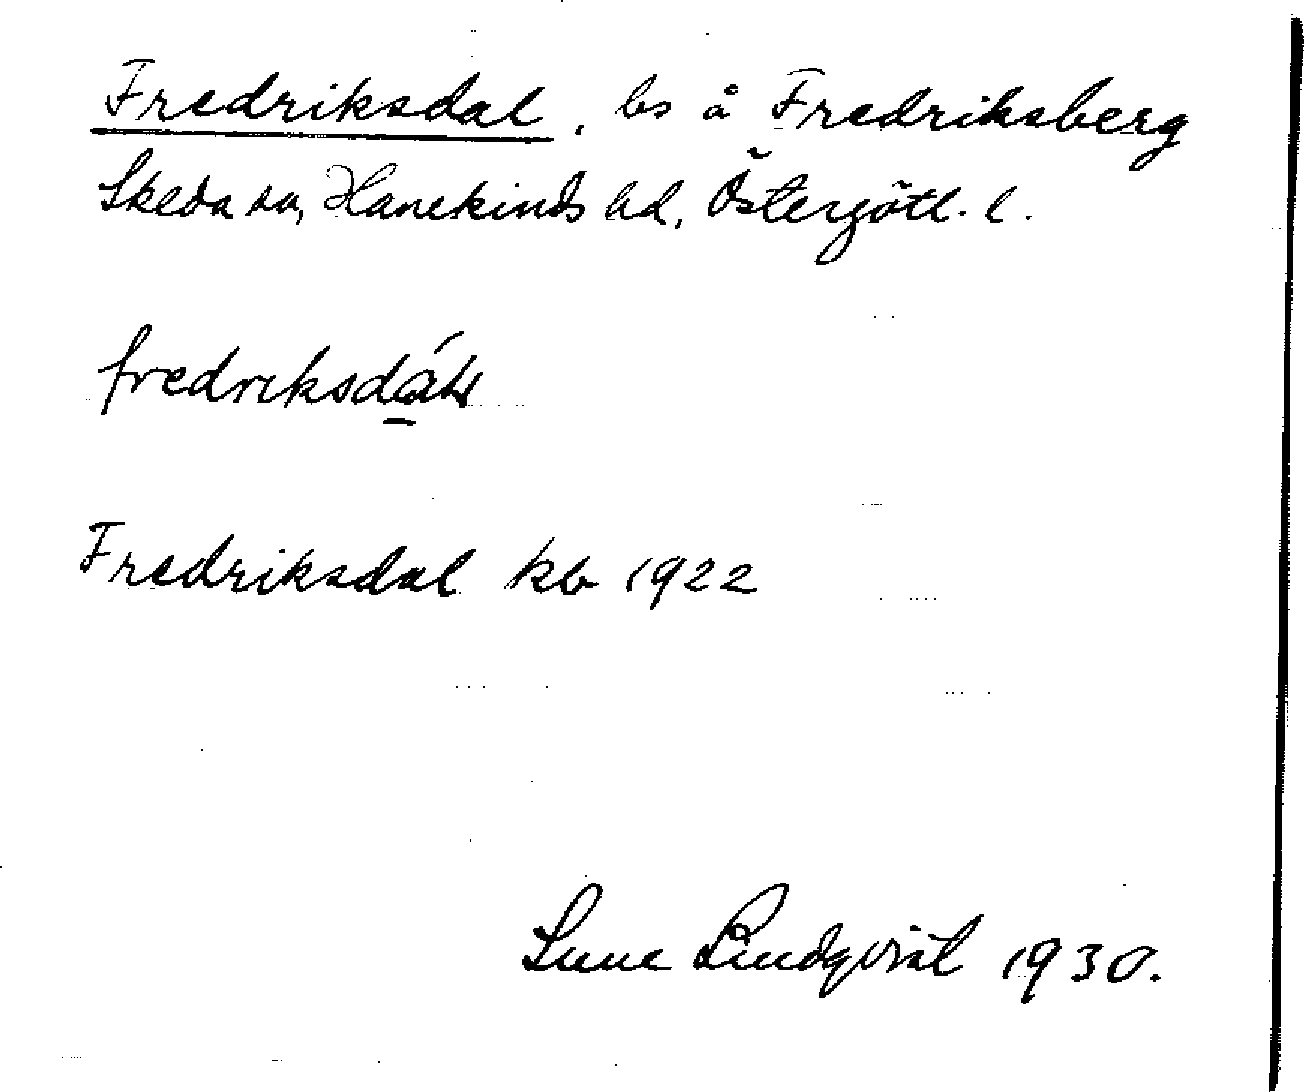 Fredriksdal, bs å Fredriksberg
Skeda sn, Hanekinds hd, Östergötl. l.
fredriksdál
Fredriksdal kb 1922
Sune Lindqvist 1930.